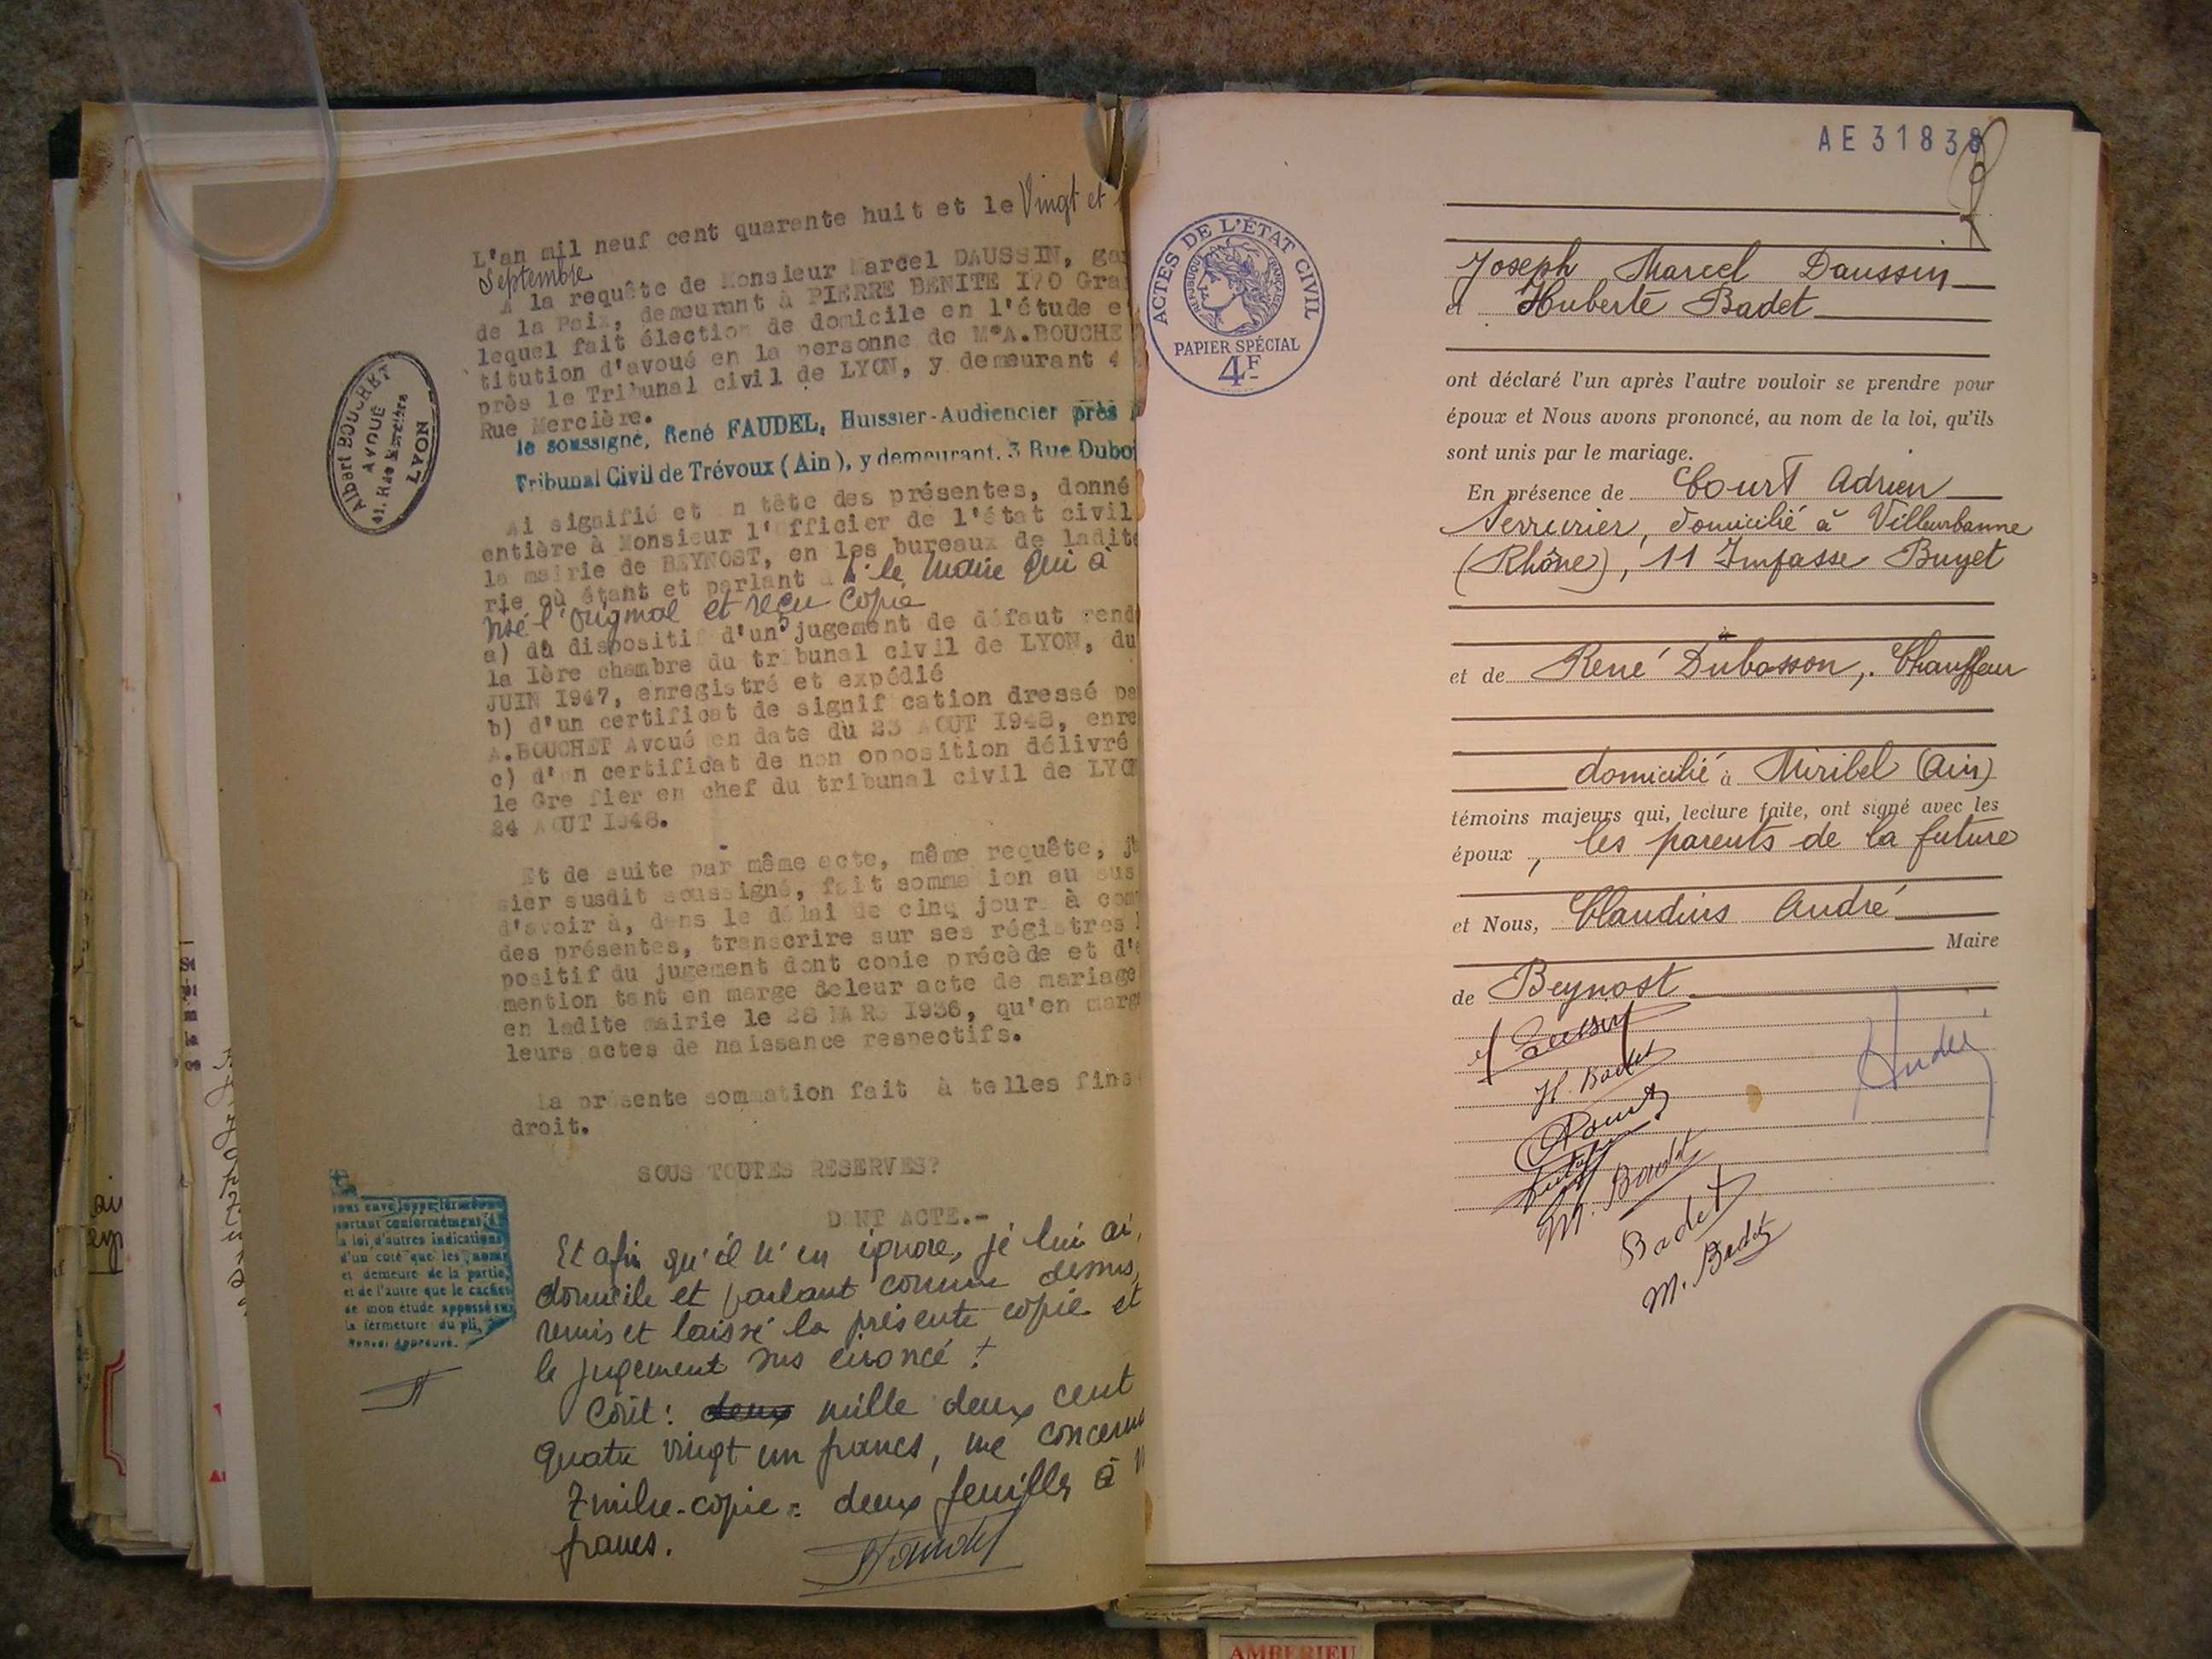 L'an mil neuf cent quarante huit et le Vingt et
Septembre
A la requête de Monsieur Marcel DAUSSIN, gar
demeurant à PIERRE BENITE 170 Gra
de la Paix,
lequel fait élection de domicile en l'étude e
titution d'avoué en la personne de M°A.BOUCHE
près le Tribunal civil de LYON, y demeurant 4
Rue Mercière.
Albert BOUCHET
AVOUÉ
41, Rue Mercière
LYON
le soussigné, René FAUDEL, Huissier-Audiencier près
Tribunal Civil de Trévoux (Ain), y demeurant, 3 Rue Dubo
Ai signifié et en tête des présentes, donné
entière à Monsieur l'Officier de l'état civil
la mairie de BEYNOST, en les bureaux de ladite
rie où étant et parlant à le Maire qui à
visé l'original et reçu copie
a) du dispositif d'un jugement de défaut rend
la 1ère chambre du tribunal civil de LYON, du
JUIN 1947, enregistré et expédié
b) d'un certificat de signification dressé pa
A.BOUCHET Avoué en date du 23 AOUT 1948, enre
c) d'un certificat de non opposition délivré
le Greffier en chef du tribunal civil de LYON
24 AOUT 1948.
Et de suite par même acte, même requête, j'
sier susdit soussigné, fait sommation au sus
d'avoir à, dans le délai de cinq jours à com
des présentes, transcrire sur ses régistres
positif du jugement dont copie précède et d'e
mention tant en marge deleur acte de mariage
en ladite mairie le 28 MARS 1936, qu'en marge
leurs actes de naissance respectifs.
La présente sommation fait à telles fins
droit.
SOUS TOUTES RESERVES?
DONT ACTE.-
sous enveloppe fermée ne
portant conformément à
la loi d'autres indications
d'un coté que les noms
et demeure de la partie,
et de l'autre que le cachet
de mon étude apposé sur
la fermeture du pli,
Renvoi Approuvé.
Et afin qu'il n'en ignore, je lui ai,
domicile et parlant comme dessus,
remis et laissé la présente copie et
le jugement sus énoncé !
Coût : deux mille deux cent
quatre vingt un francs, me concerna
Timbre-copie = deux feuilles à
francs.
Faudel
AE 31838
ACTES DE L'ÉTAT CIVIL
RÉPUBLIQUE FRANÇAISE
PAPIER SPÉCIAL
4F
Joseph Marcel Daussin
et Huberte Badet
ont déclaré l'un après l'autre vouloir se prendre pour
époux et Nous avons prononcé, au nom de la loi, qu'ils
sont unis par le mariage.
En présence de Court Adrien
Serrurier, domicilié à Villeurbanne
(Rhône), 11 Impasse Buyet
et de René Dubosson, Chauffeur
domicilié à Miribel (Ain)
témoins majeurs qui, lecture faite, ont signé avec les
époux, les parents de la future
et Nous, Claudius André
Maire
de Beynost
H. Badet
André
M. Badet
Badet
M. Badet
AMBERIEU